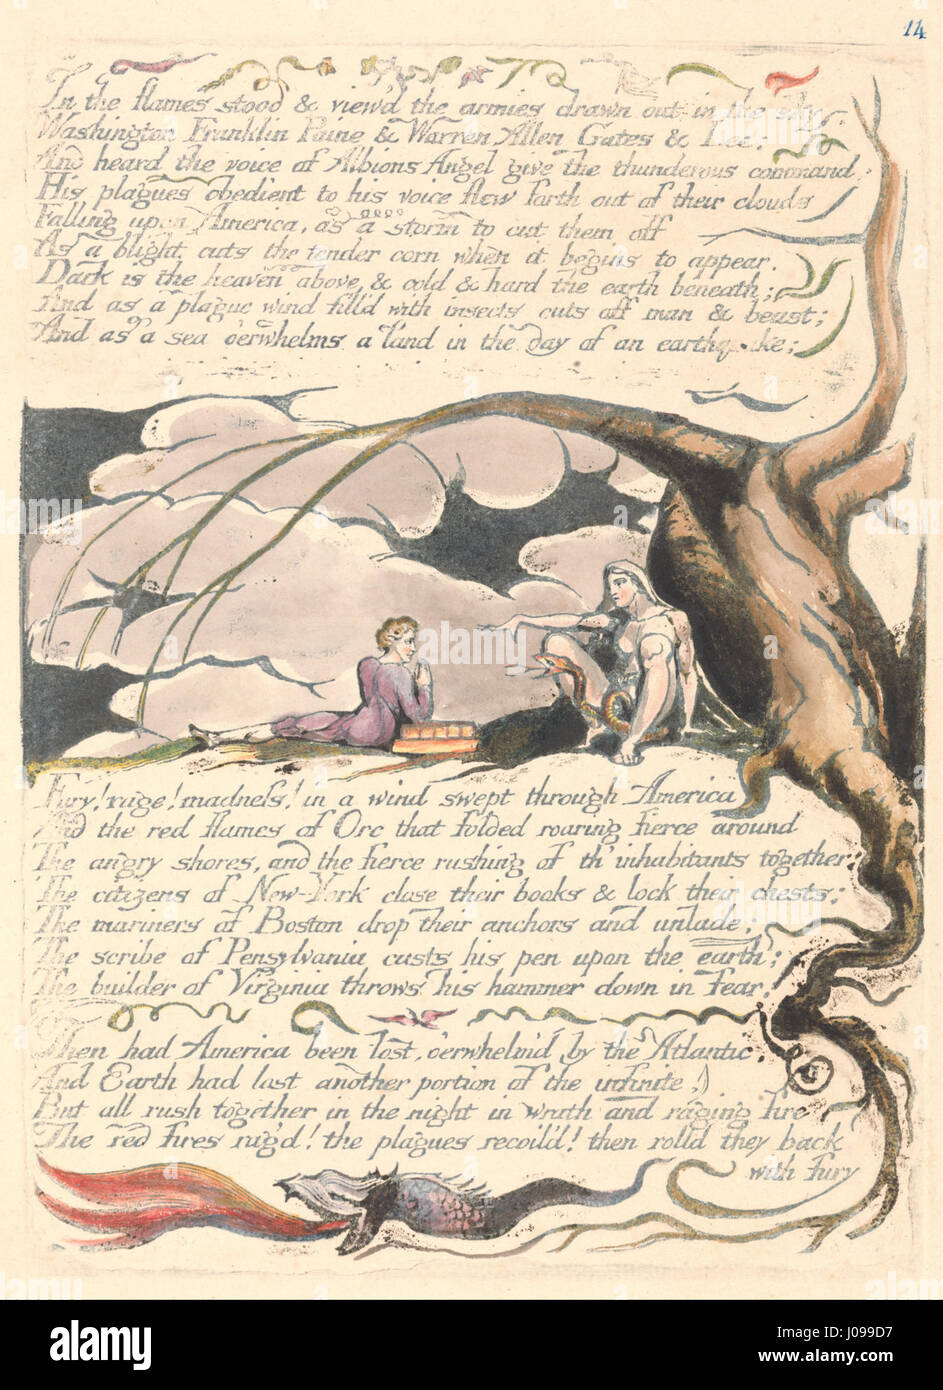 14
In the flames stood & view'd the armies drawn out in the sky
Washington Franklin Paine & Warren Allen Gates & Lee:
And heard the voice of Albions Angel give the thunderous command:
His plagues obedient to his voice flew forth out of their clouds
Falling upon America, as a storm to cut them off
As a blight cuts the tender corn when it begins to appear.
Dark is the heaven above, & cold & hard the earth beneath;
And as a plague wind fill'd with insects cuts off man & beast;
And as a sea o'erwhelms a land in the day of an earthquake;
Fury! rage! madness! in a wind swept through America
And the red flames of Orc that folded roaring fierce around
The angry shores, and the fierce rushing of th' inhabitants together:
The citizens of New-York close their books & lock their chests;
The mariners of Boston drop their anchors and unlade;
The scribe of Pensylvania casts his pen upon the earth;
The builder of Virginia throws his hammer down in fear.
Then had America been lost, o'erwhelm'd by the Atlantic.
And Earth had lost another portion of the infinite,
But all rush together in the night in wrath and raging fire
The red fires rag'd! the plagues recoil'd! then rolld they back
with fury
a alamy stock photo
J099D7
www.alamy.com